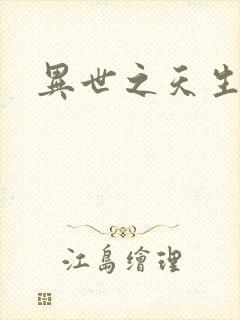 異世之天生
江島繪理